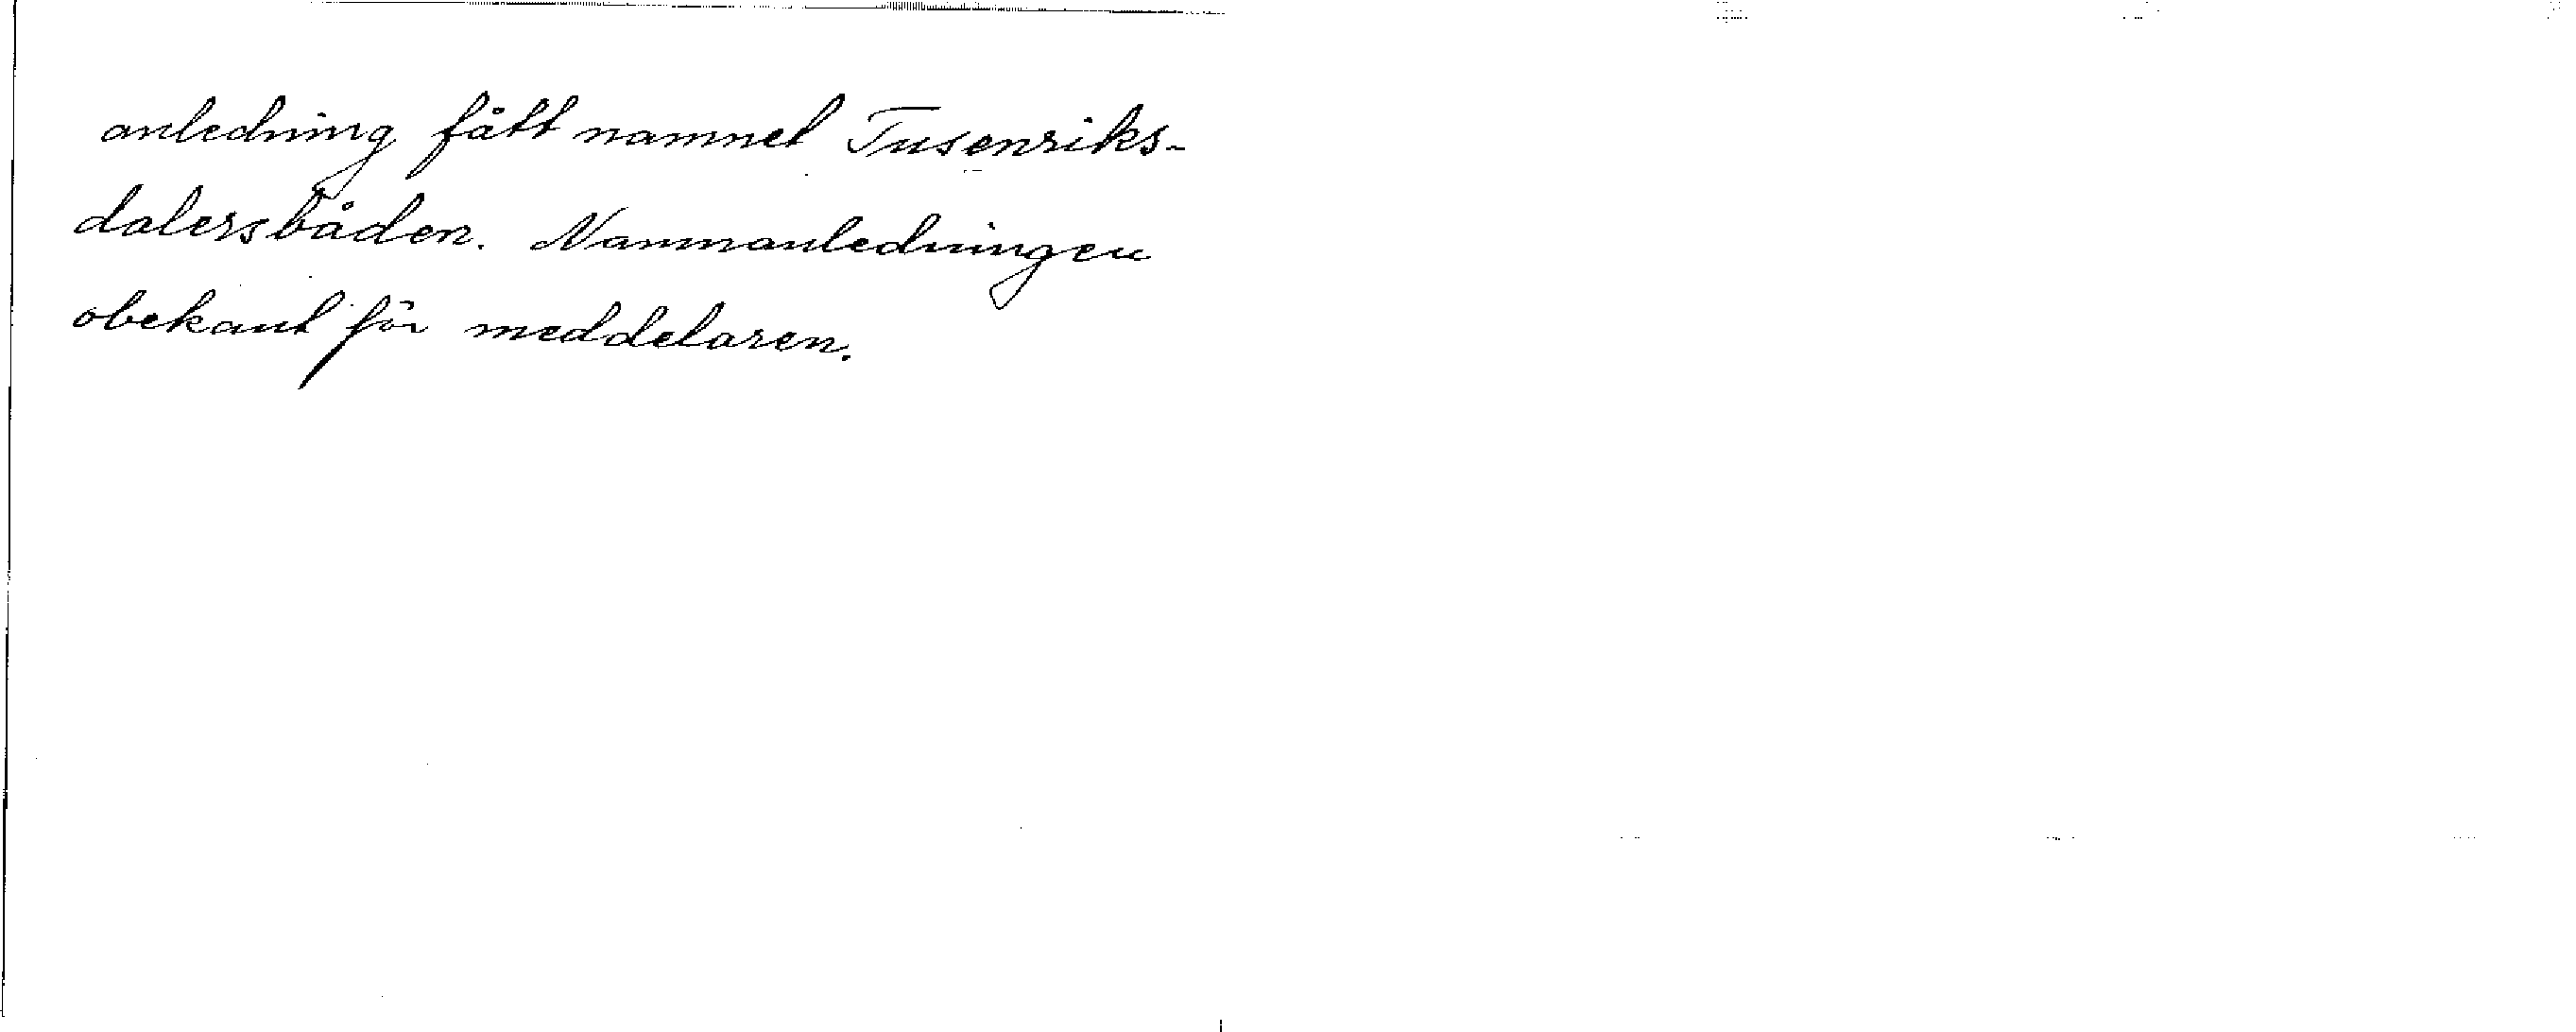 anledning fått namnet Tusenriks-
dalersbåden. Namnanledningen
obekant för meddelaren.